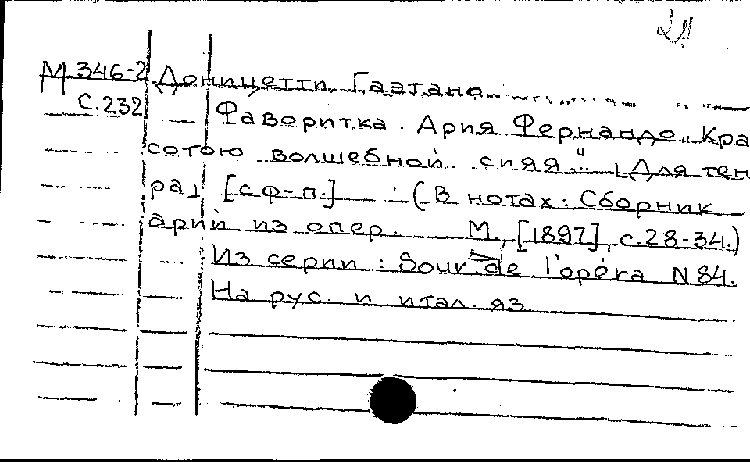 М 346-2 Доницетти Гаэтано
С.232 Фаворитка. Ария Фернандо „Кра
сотою волшебной сияя" [Для тен
ра] [с ф-п.] (В нотах: Сборник
арий из опер. М., [1897], с.28-34.)
Из серии: de l'opéra N 84.
На рус. и итал. яз